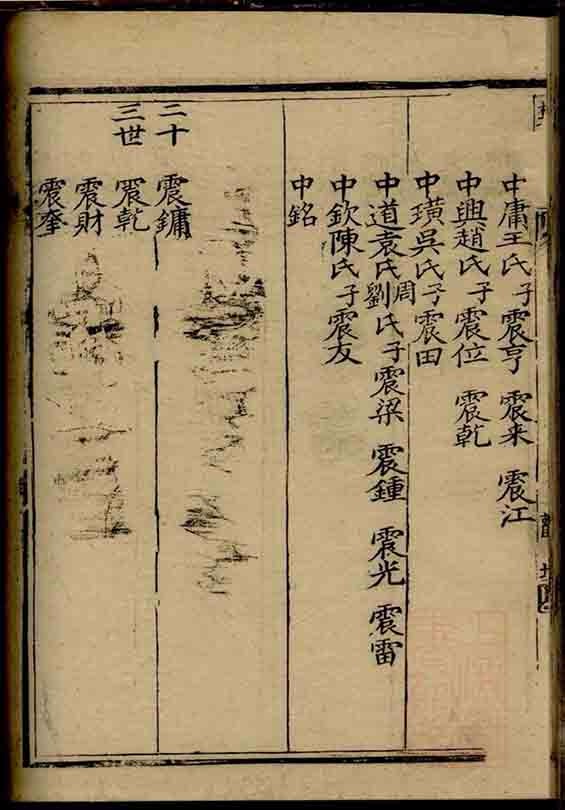 中庸王氏子震亨 震来 震江
中興趙氏子震位 震乾
中璜吳氏子震田
中道袁氏周劉氏子震梁 震鍾 震光 震雷
中欽陳氏子震友
中銘
二十
三世
震鏞
震乾
震財
震奎